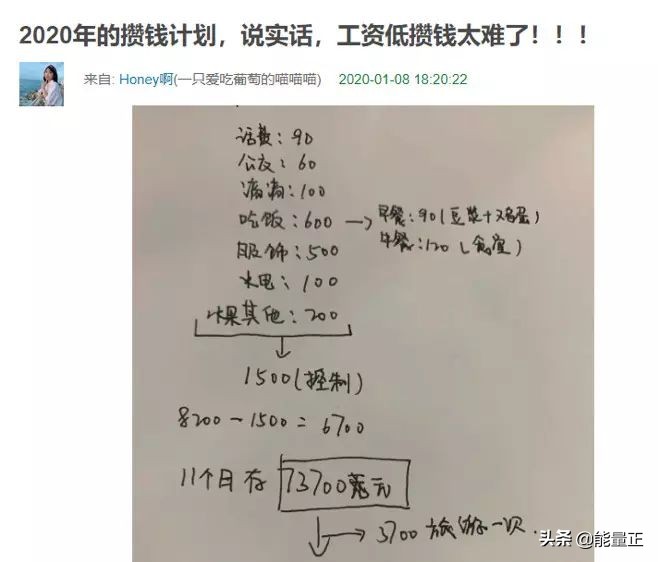 2020年的攒钱计划，说实话，工资低攒钱太难了！！！
来自: Honey啊(一只爱吃葡萄的喵喵喵) 2020-01-08 18:20:22
话费：90
公交：60
滴滴：100
吃饭：600 → 早餐：90(豆浆+鸡蛋)
午餐：120(食堂)
服饰：500
水电：100
水果其他：200
1500(控制)
8200-1500=6700
11个月存 73700元
3700 旅游一次.
头条 @能量正